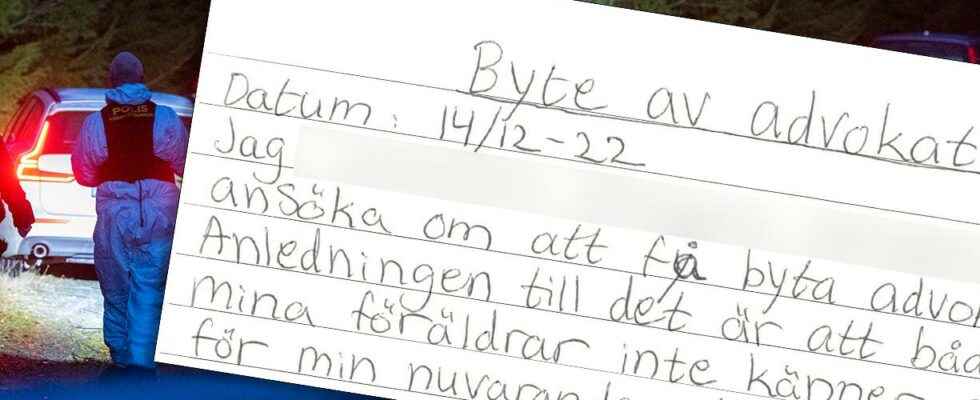 POLIS
Byte av advokat
Datum: 14/12-22
Jag
ansöka om att få byta advo
Anledningen till det är att båd
mina föräldrar inte känner
för min nuvaran